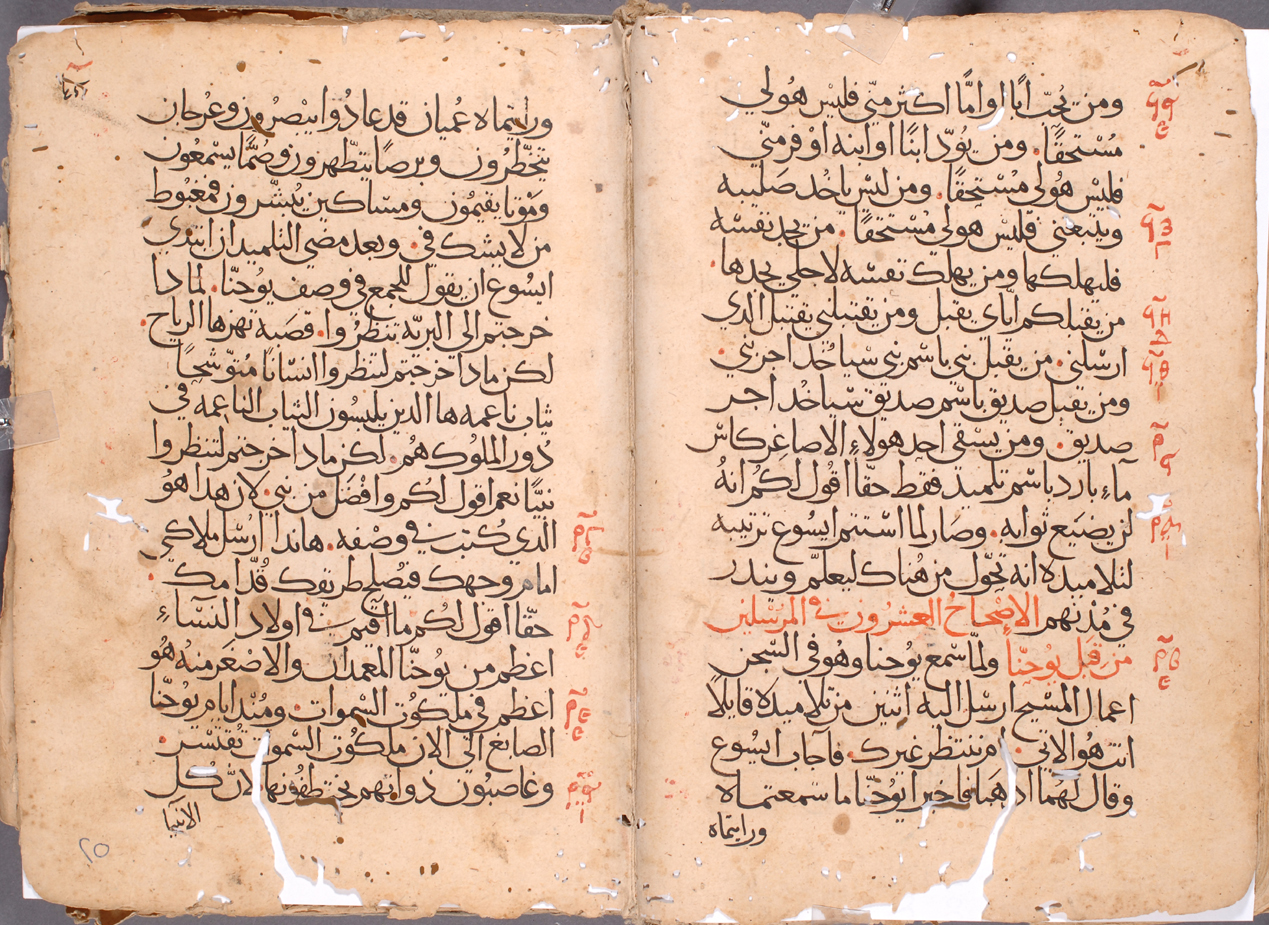 ومن يُحبّ ابًا او امًّا اكثر منّي فليس هو لي
مُسْتحقًا. ومن يودّ ابنًا او ابنه اوفر منّي
فليس هو لي مُسْتحقًا. ومن ليس ياخد صَليبه
ويتبعني فليس هو لي مُسْتحقًا. من يجد نفسَه
فليهلكها ومن يهلك نفسَه لاجلي يجدها.
من يقبلكم ايّاي يقبل ومن يقتبلني يقتبل الدي
ارسلني. من يقبل نبي باسم نبي سياخُد اجر نبي.
ومن يقبل صديق باسْم صديق سياخُد اجر
صديق. ومن يسقي احد هولاءِ الاصاغر كاس
مآءٍ بارد باسْم تلميد فقط حقًّا اقول لكم انهُ
لن يضيَع ثوابه. وصَار لما استتم ايسُوع ترتيبه
لتلاميده انه تحّول من هُناك ليعلّم ويندر
في مُدنهم الاصحاحُ العشرُون في المرسَلين
من قِبَل يوحنّا ولمّا سْمع يوحنا وهُو في السّجن
اعمال المسْيح ارسل اليه اثنين من تلاميده قايلاً
انت هُو الاتي. ام ننتظر غيرك. فاجاب ايسُوع
وقال لهَما ادهَبا فاخبرا يُوحنّا ما سْمعتماه
ورايتماه
ورايتماه عُميان قد عادُوا يبصْرون وعُرجان
يتخطّرُون وبرصًا يتطّهرون وصُمًّا يسْمعُون
ومَوتا يقمُون ومسَاكين يُبشّرون فمغبُوط
من لا يشك في. وبعد مضي التلميدان ابتدي
ايسُوع ان يقول للجمع في وصف يوُحنّا. لمادا
خرجتم الي البريّه تنظرُوا. قصَبه تهزها الرياح.
لكن مادا خرجتم لتنظروا انسْانًا مُتوّشحًا
ثياب ناعمه ها الدين يلبسُون الثياب الناعمه في
دُور الملوك هُم. لكن مادا خرجتم لتنظروا
نبيًّا نعم اقول لكُم وافضَل من نبي. لان هدا هوُ
الدي كُتب في وصْفه. هاندا ارسْل ملاكي
امام وجهك فيُصلح طريقك قُدّامك.
حقّا اقول لكُم ما اُقيم في اولاد النسَاءِ
اعظم من يوُحنّا المعمدان والاصْغر منه هُو
اعظم في ملكوت السْموات. ومُند ايام يوُحنّا
الصابغ الي الان ملكُوت السْموات تُقتسْر.
وغاصبُون دواتهم يختطفُونها لانّ كُل
الانبيا